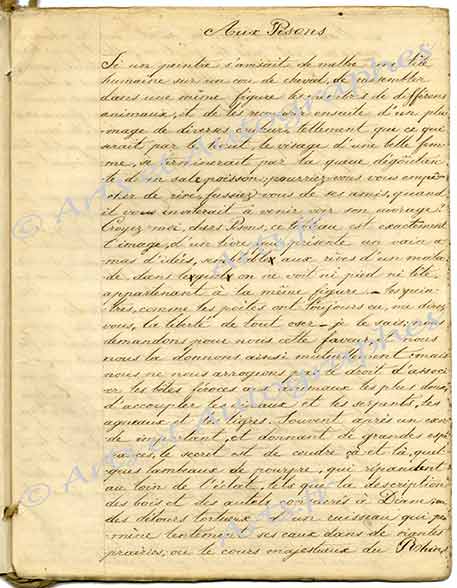 Aux Pisons
Si un peintre s'amisait de mettre une tête
humaine sur un cou de cheval, de rassembler
dans une même figure les membres de différens
animaux, et de les recouvrir ensuite d'un plu
mage de diverses couleurs, tellement que ce qui
serait par le haut, le visage d'une belle fem-
me, se terminerait par la queue dégoûtan
te d'un sale poisson; pourriez vous vous empê
cher de rire, fussiez vous de ses amis, quand
il vous inviterait à venir voir son ouvrage?
Croyez moi, chers Pisons, ce tableau est exactement
l'image d'un livre qui présente un vain a
mas d'idées, semblables aux rêves d'un mala
de dans lesquels on ne voit ni pied ni tête
appartenant à la même figure - les pein
tres, comme les poëtes ont toujours eu, me direz
vous, la liberté de tout oser - je le sais, nous
demandons pour nous cette faveur, et nous
nous la donnons aussi mutuellement: mais
nous ne nous arrogeons pas le droit d'associ
er les bêtes féroces aux animaux les plus doux,
d'accoupler les oiseaux et les serpents, les
agneaux et les tigres. Souvent après un exor
de important, et donnant de grandes espé
rances, le secret est de coudre çà et là, quel
ques lambeaux de pourpre, qui répandent
au loin de l'éclat, tels que la description
des bois et des autels consacrés à Diane,
des détours tortueux d'un ruisseau qui pro
mène lentement ses eaux dans de riantes
prairies, ou le cours majestueux du Rhin,
© Arts et Autographes
Arts et Autographes
© Arts et Autographes
Arts.fr